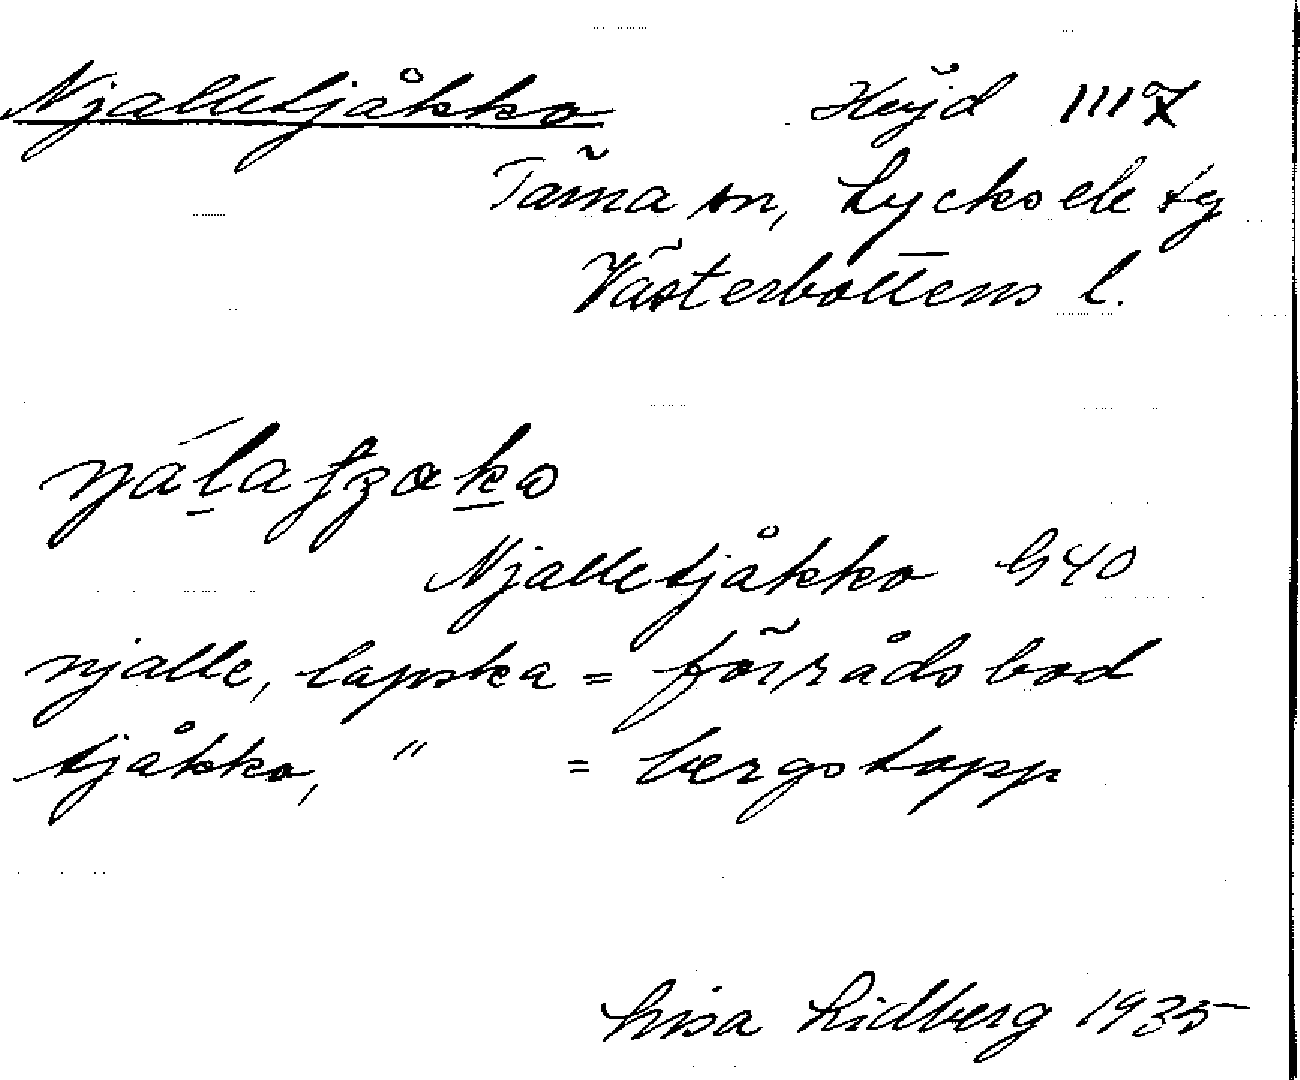 Njalletjåkko Höjd 1117
Tärna sn, Lycksele tg
Västerbottens l.
Njalletjåkko G40
njalle, lapska = förrådsbod
tjåkko, " = bergstopp
Lisa Lidberg 1935